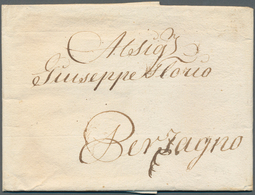 Al Sig.r
Giuseppe Florio
Perzagno